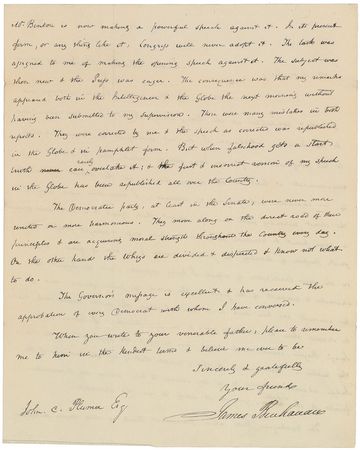 Mr Benton is now making a powerful speech against it. In its present
form, or any thing like it, Congress will never adopt it. The task was
assigned to me of making the opening speech against it. The subject was
then new & the Press was eager. The consequence was that my remarks
appeared both in the Intelligencer & the Globe the next morning without
having been submitted to my supervision. There were many mistakes in both
reports. They were corrected by me & the speech as corrected was republished
in the Globe & in pamphlet form. But when falsehood gets a start
truth can rarely overtake it; & the first & incorrect version of my speech
in the Globe has been republished all over the Country.
The Democratic party, at least in the Senate, were never more
united or more harmonious. They move along on the direct road of their
principles & are acquiring moral strength throughout the Country every day.
On the other hand the Whigs are divided & distracted & know not what
to do.
The Governor's message is excellent & has received the
approbation of every Democrat with whom I have conversed.
When you write to your venerable father, please to remember
me to him in the kindest terms & believe me ever to be
Sincerely & gratefully
Your friend
James Buchanan
John. C. Plumer Esq